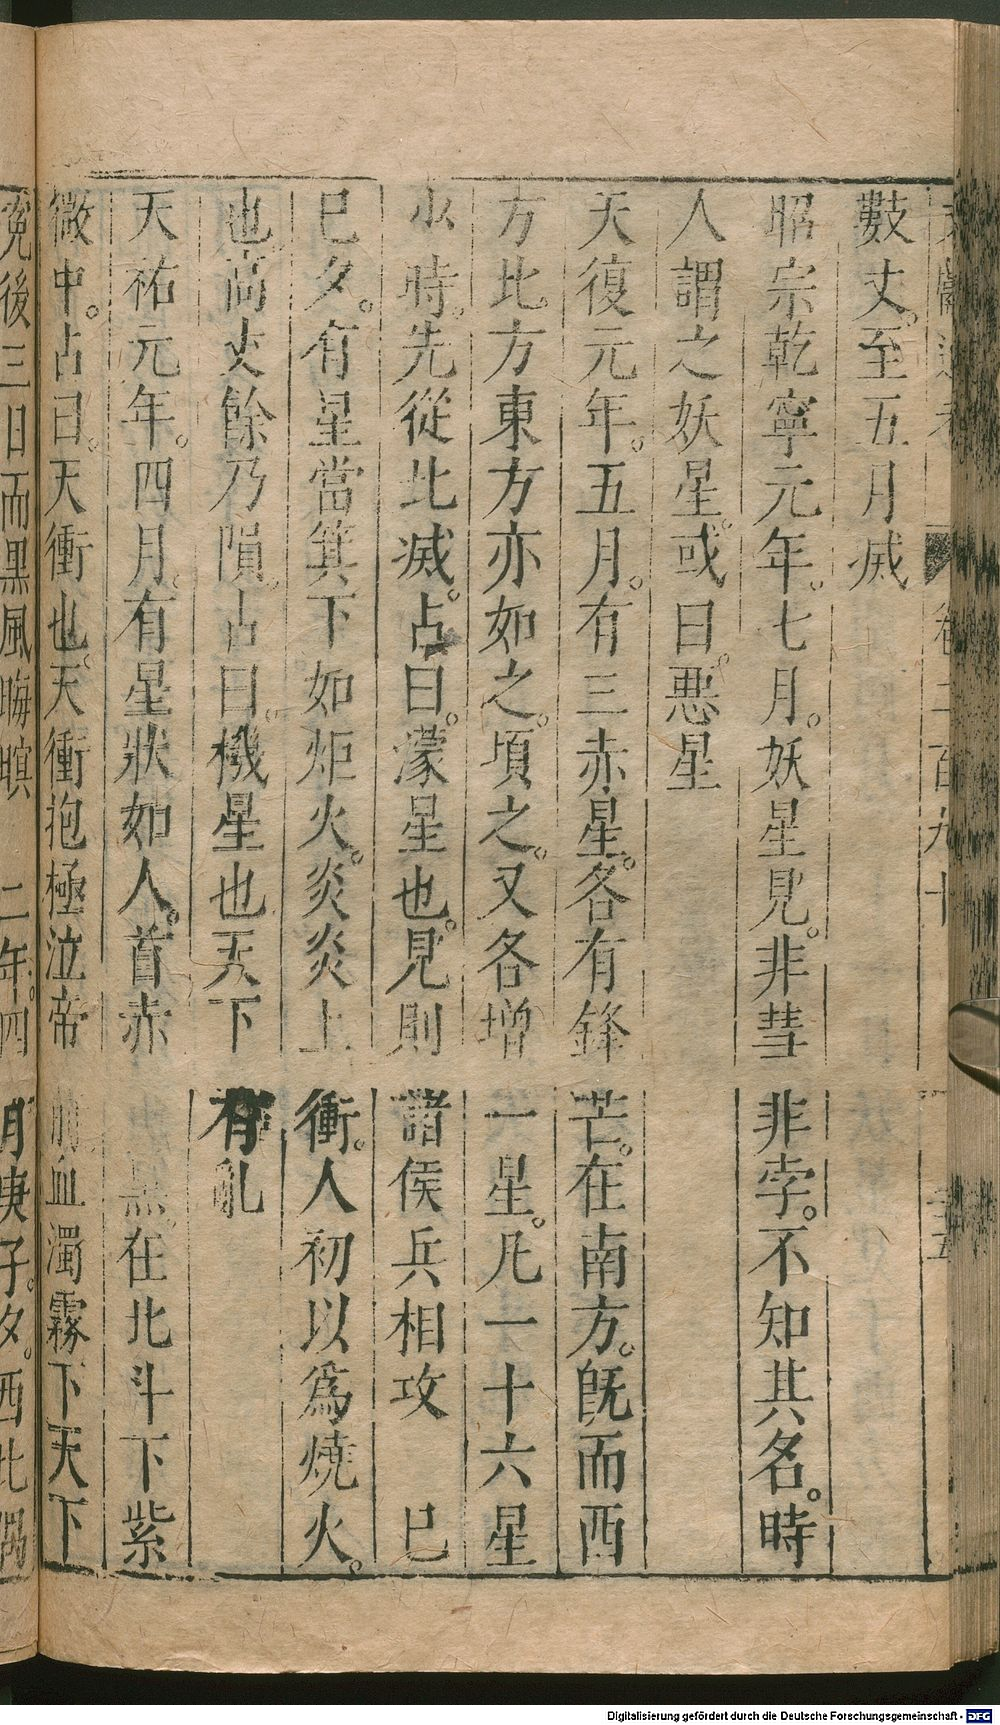 數丈至五月滅
昭宗乾寧元年七月妖星見非彗非孛不知其名時
人謂之妖星或曰惡星
天復元年五月有三赤星各有鋒芒在南方旣而西
方北方東方亦如之頃之又各增一星凡一十六星
少時先從北滅占曰濛星也見則諸侯兵相攻 巳
巳夕有星當箕下如炬火炎炎上衝人初以爲燒火
也高丈餘乃隕占曰機星也天下有亂
天祐元年四月有星狀如人首赤身黑在北斗下紫
微中占曰天衝也天衝抱極泣帝前血濁霧下天下
冤後三日而黑風晦暝 二年四月庚子夕西北隅
Digitalisierung gefördert durch die Deutsche Forschungsgemeinschaft - DFG